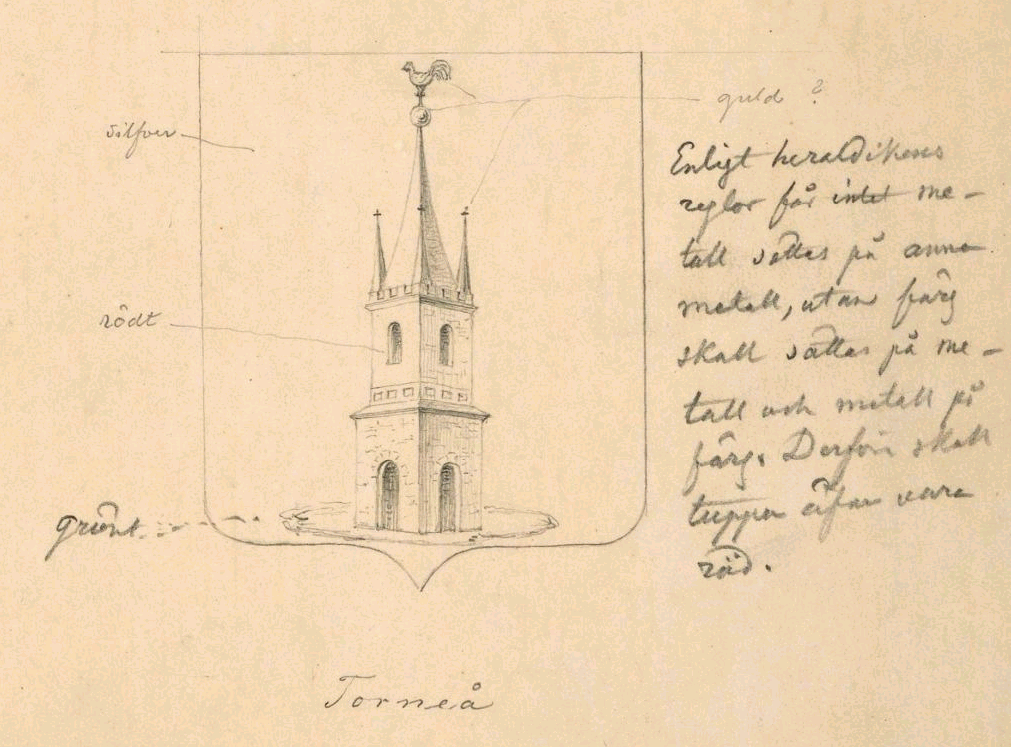 guld ?
silfver
Enligt heraldikens
reglor får intet me-
tall sättas på anna
metall, utan färg
skall sättas på me-
tall och metall på
färg. Derför skall
tuppen äfven vara
röd.
rödt
Grönt.
Torneå